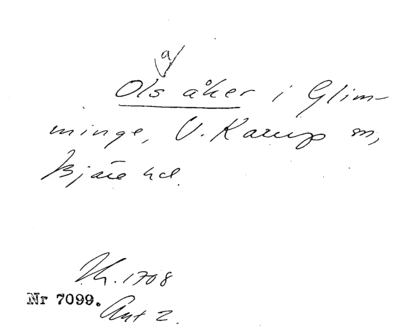 Olsa åker i Glim-
minge, V. Karup sn,
Bjäre hd.
1708
Nr 7099.
Ant 2.